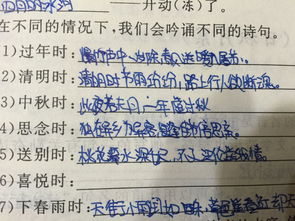 ——开动(冻)了。
在不同的情况下,我们会吟诵不同的诗句。
1)过年时:爆竹声中一岁除,春风送暖入屠苏。
2)清明时:清明时节雨纷纷,路上行人欲断魂。
3)中秋时:此夜若无月一年虚过秋
4)思念时:独在异乡为异客,每逢佳节倍思亲。
5)送别时:桃花潭水深千尺,不及汪伦送我情。
6)喜悦时:
7)下春雨时:天街小雨润如酥,草色遥看近却无